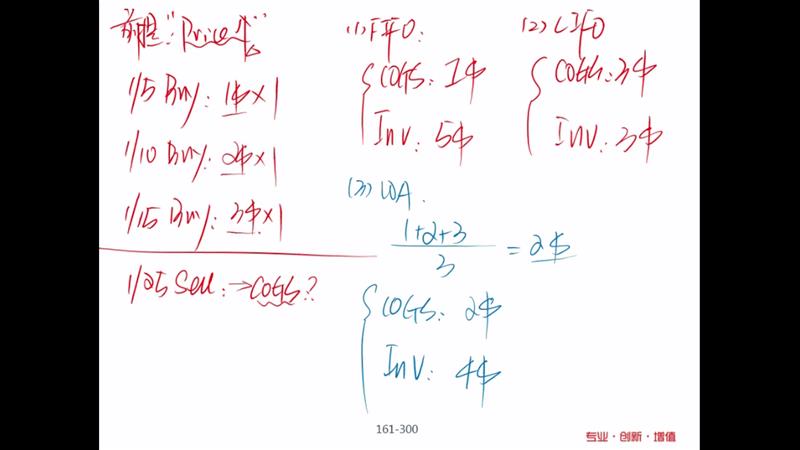 前提:"Price↑"
1/5 Buy: 1$×1
1/10 Buy: 2$×1
1/15 Buy: 3$×1
1/25 Sell: →COGS?
(1) FIFO:
COGS: 1$
Inv: 5$
(2) LIFO
COGS: 3$
Inv: 3$
(3) WA.
1+2+3
3
= 2$
COGS: 2$
Inv: 4$
161-300
专业·创新·增值